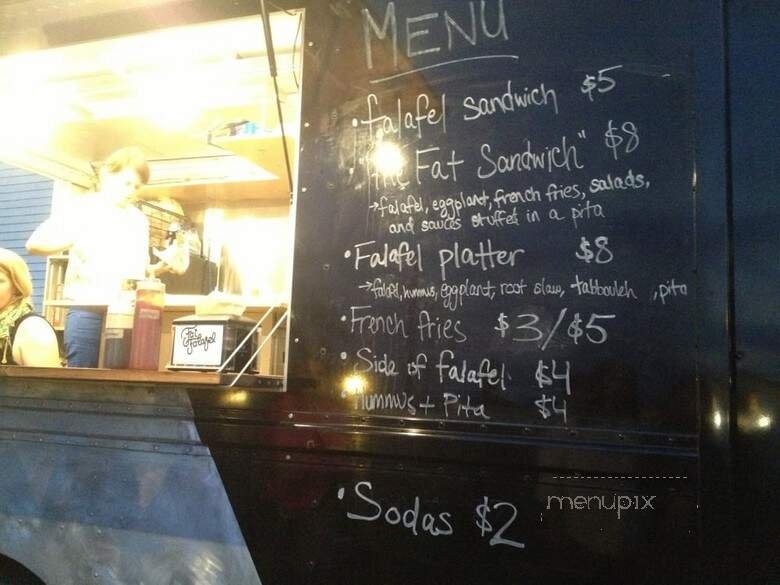 MENU
• falafel sandwich $5
"The Fat Sandwich" $8
→ falafel, eggplant, french fries, salads,
and sauces stuffed in a pita
• Falafel platter $8
→ falafel, hummus, eggplant, root slaw, tabbouleh, pita
• French fries $3/$5
• Side of falafel $4
• Hummus + Pita $4
• Sodas $2
Fat Falafel
menupix